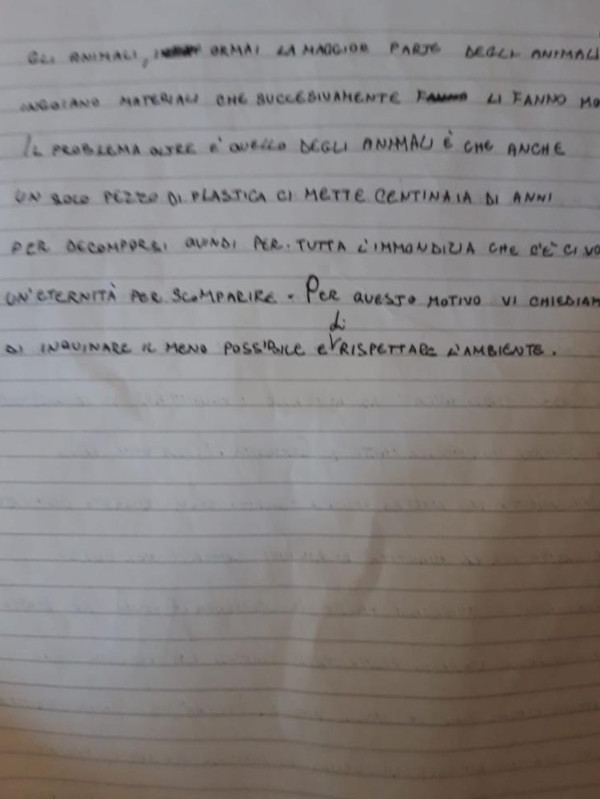 GLI ANIMALI, ORMAI LA MAGGIOR PARTE DEGLI ANIMALI
INGOIANO MATERIALI CHE SUCCESIVAMENTE FANNO LI FANNO MO
IL PROBLEMA OLTRE A QUELLO DEGLI ANIMALI È CHE ANCHE
UN SOLO PEZZO DI PLASTICA CI METTE CENTINAIA DI ANNI
PER DECOMPORSI QUINDI PER TUTTA L'IMMONDIZIA CHE C'È CI VO
UN'ETERNITÀ PER SCOMPARIRE. PER QUESTO MOTIVO VI CHIEDIAM
DI INQUINARE IL MENO POSSIBILE E di RISPETTARE L'AMBIENTE.